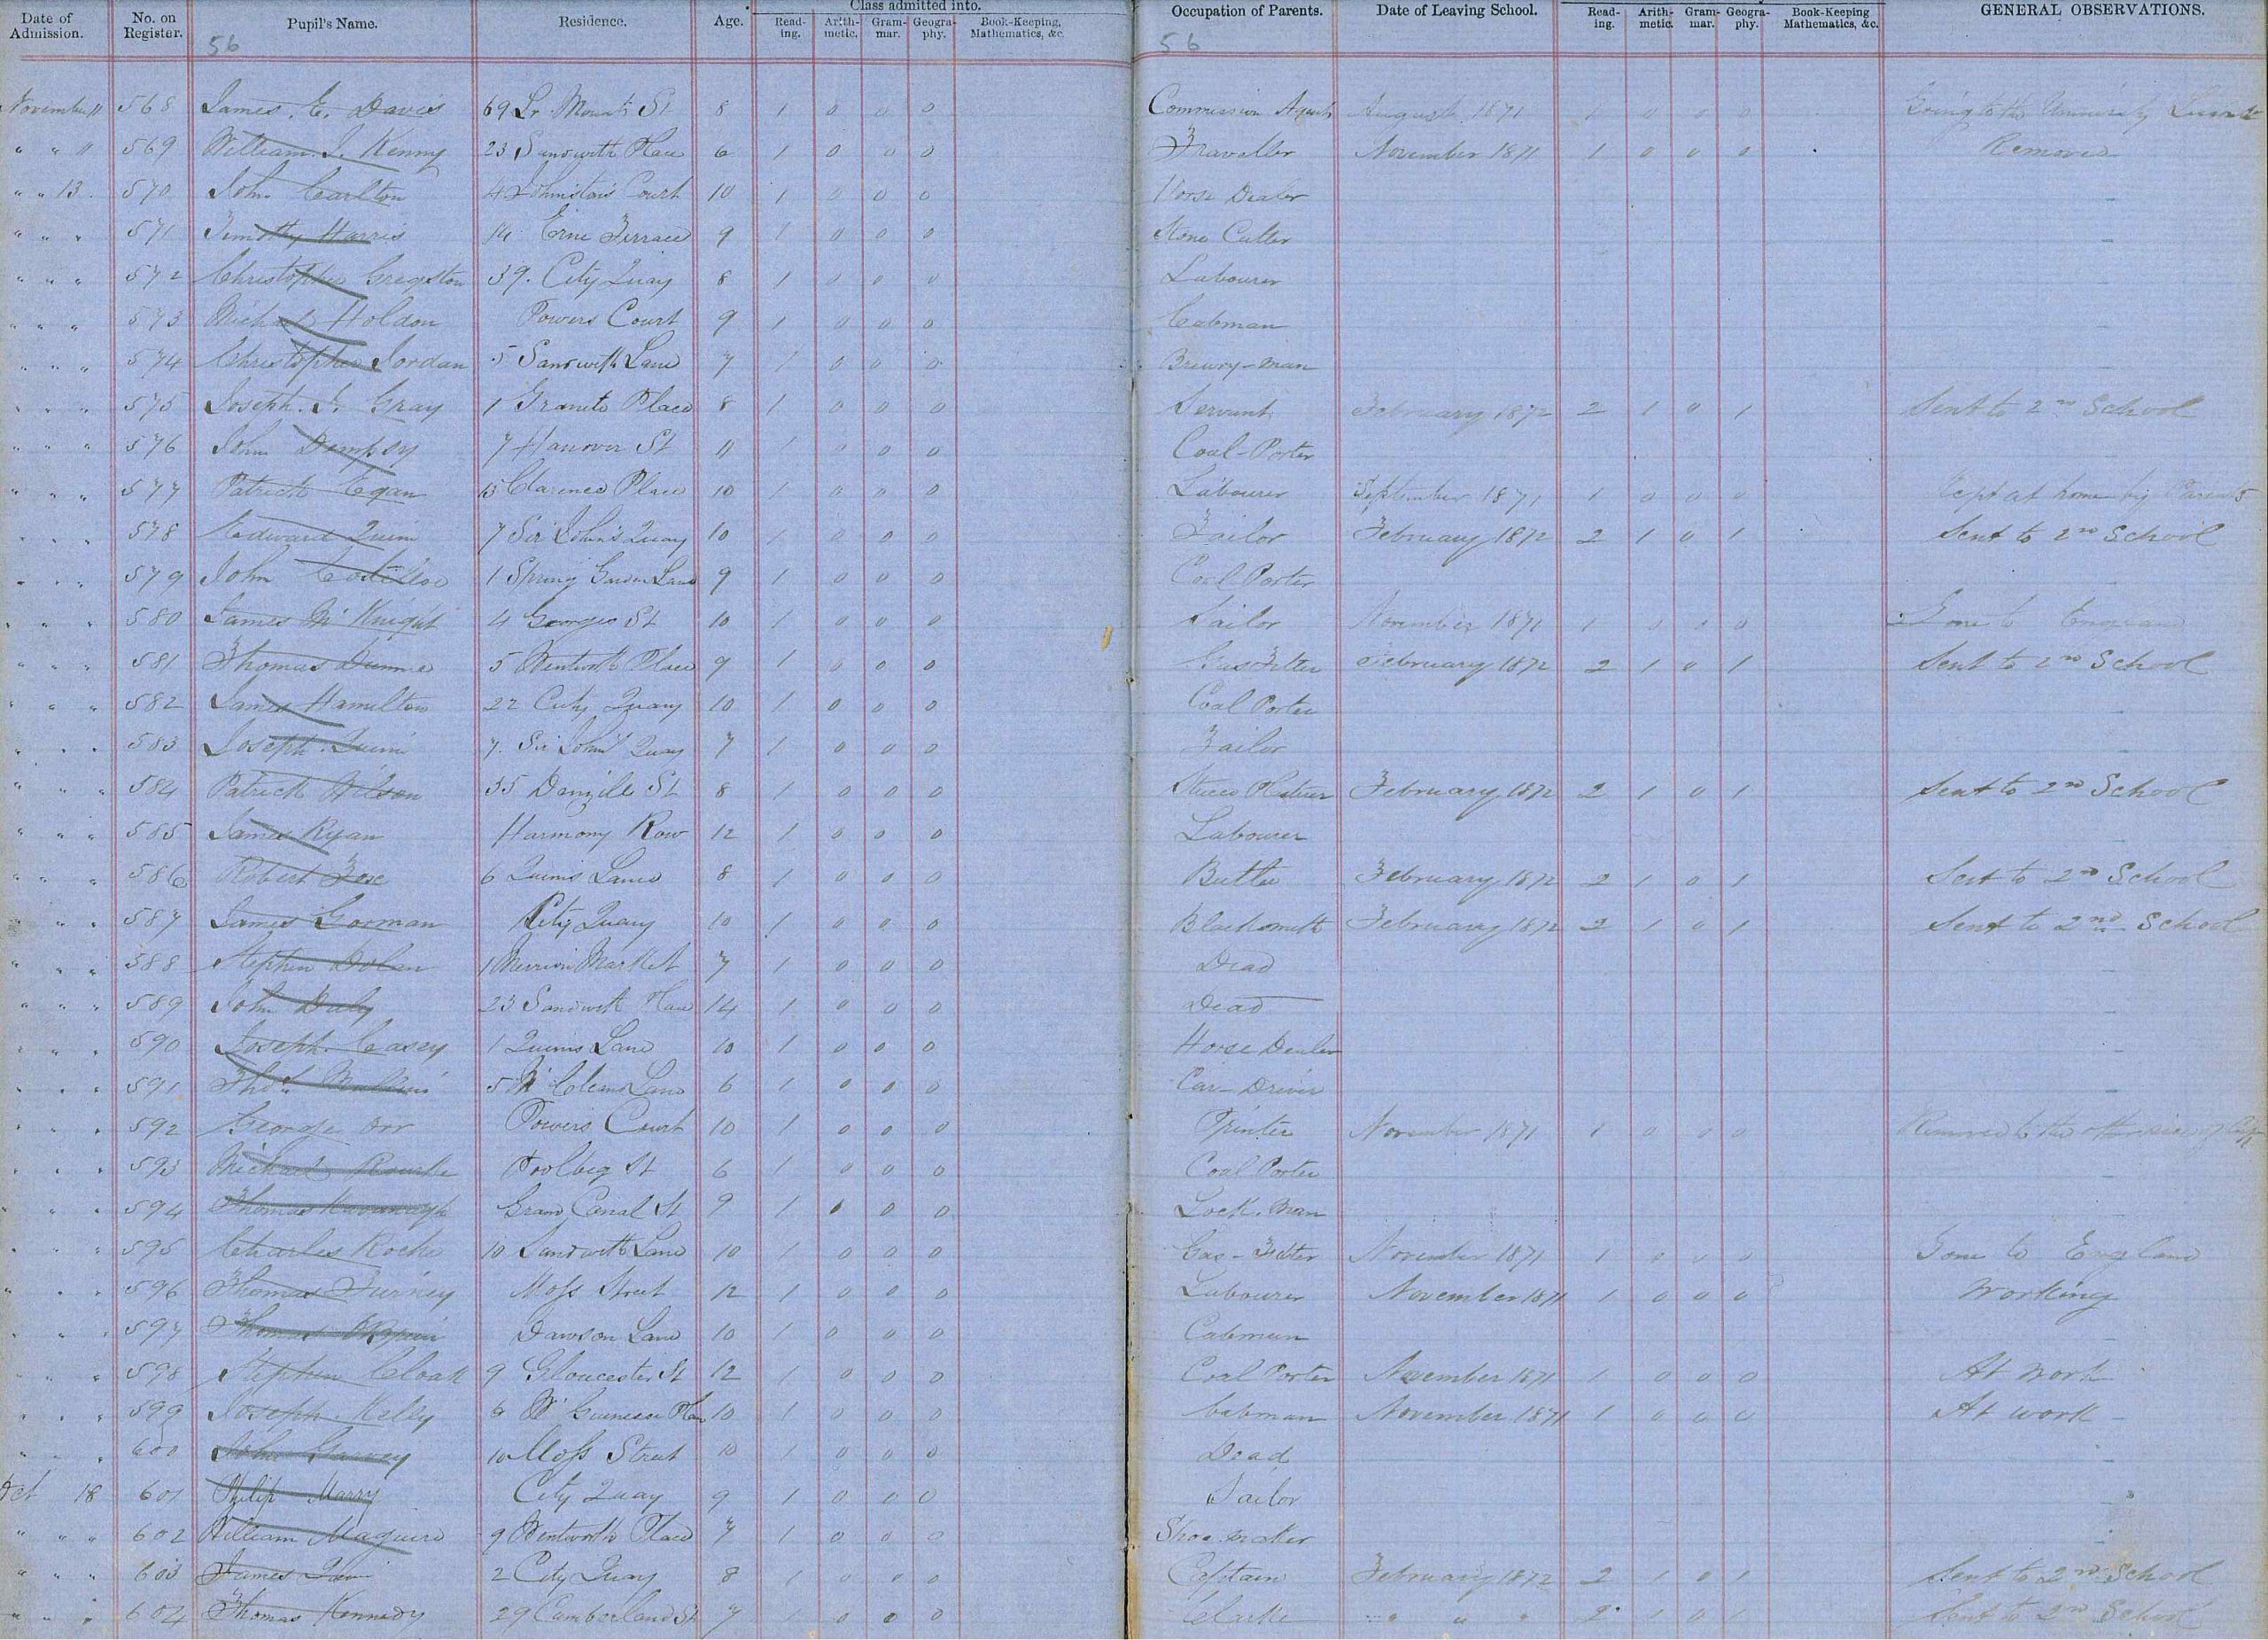 Class admitted into.
Date of Admission. No. on Register. Pupil's Name. Residence. Age. Read-ing. Arith-metic. Gram-mar. Geogra-phy. Book-Keeping, Mathematics, &c. Occupation of Parents. Date of Leaving School. Read-ing. Arith-metic. Gram-mar. Geogra-phy. Book-Keeping Mathematics, &c. GENERAL OBSERVATIONS.
56 56
November 11 568 James. E. Davis 69 Lr Mount St 8 1 0 0 0 Commission Agent August 1871 1 0 0 0 Going to the University
" " 11 569 William. J. Kenny 23 Sandwith Place 6 1 0 0 0 Traveller November 1871 1 0 0 0 Removed
" " 13. 570 John Carlton 4 Johnston's Court 10 1 0 0 0 Horse Dealer
" " " 571 Timothy Harris 14 Erne Terrace 9 1 0 0 0 Stone Cutter
" " " 572 Christopher Gregston 39. City Quay 8 1 0 0 0 Labourer
" " " 573 Michael Holdon Powers Court 9 1 0 0 0 Cabman
" " " 574 Christopher Jordan 5 Sandwith Lane 7 1 0 0 0 Brewry-man
" " " 575 Joseph. J. Gray 1 Granite Place 8 1 0 0 0 Servant February 1872 2 1 0 1 Sent to 2nd School
" " " 576 John Dempsy 7 Hanover St 11 1 0 0 0 Coal-Porter
" " " 577 Patrick Egan 15 Clarence Place 10 1 0 0 0 Labourer September 1871 1 0 0 0 Kept at home by Parents
" " " 578 Edward Quinn 7 Sir John's Quay 10 1 0 0 0 Tailor February 1872 2 1 0 1 Sent to 2nd School
" " " 579 John Costelloe 1 Spring Garden Lane 9 1 0 0 0 Coal Porter
" " " 580 James Mc Knight 4 Georges St 10 1 0 0 0 Sailor November 1871 1 0 0 0 Gone to England
" " " 581 Thomas Dunne 5 Wentworth Place 9 1 0 0 0 Gasfitter February 1872 2 1 0 1 Sent to 2nd School
" " " 582 James Hamilton 22 City Quay 10 1 0 0 0 Coal Porter
" " " 583 Joseph Quinn 7. Sir John's Quay 7 1 0 0 0 Tailor
" " " 584 Patrick Wilson 35 Denzille St 8 1 0 0 0 Stucco Plasterer February 1872 2 1 0 1 Sent to 2nd School
" " " 585 James Ryan Harmony Row 12 1 0 0 0 Labourer
" " " 586 Robert Fox 6 Quinns Lane 8 1 0 0 0 Butler February 1872 2 1 0 1 Sent to 2nd School
" " " 587 James Gorman City Quay 10 1 0 0 0 Blacksmith February 1872 2 1 0 1 Sent to 2nd School
" " " 588 Stephen Dolan 1 Merrion Market 7 1 0 0 0 Dead
" " " 589 John Daly 23 Sandwith Place 14 1 0 0 0 Dead
" " " 590 Joseph Casey 1 Quinns Lane 10 1 0 0 0 Horse Dealer
" " " 591 Thos. Mullins 5 Mc Cleans Lane 6 1 0 0 0 Car-Driver
" " " 592 George Orr Powers Court 10 1 0 0 0 Printer November 1871 1 0 0 0 Removed to the other side of City
" " " 593 Michael Rourke Poolbeg St 6 1 0 0 0 Coal Porter
" " " 594 Thomas Kavanagh Grand Canal St 9 1 0 0 0 Lock. man
" " " 595 Charles Roche 10 Sandwith Lane 10 1 0 0 0 Gas-Fitter November 1871 1 0 0 0 Gone to England
" " " 596 Thomas Furney Moss Street 12 1 0 0 0 Labourer November 1871 1 0 0 0 Working
" " " 597 Thomas Dawson Lane 10 1 0 0 0 Cabman
" " " 598 Stephen Cloak 9 Gloucester St 12 1 0 0 0 Coal Porter November 1871 1 0 0 0 At work
" " " 599 Joseph Kelly 6 Mc Guinness Place 10 1 0 0 0 Cabman November 1871 1 0 0 0 At work
" " " 600 John Garvey 10 Moss Street 10 1 0 0 0 Dead
Oct 18 601 Philip Marry City Quay 9 1 0 0 0 Sailor
" " " 602 William Maguire 9 Wentworth Place 7 1 0 0 0 Shoe maker
" " " 603 James 2 City Quay 8 1 0 0 0 Captain February 1872 2 1 0 1 Sent to 2nd School
" " " 604 Thomas Kennedy 29 Cumberland St 7 1 0 0 0 Clarke " " " 2 1 0 1 Sent to 2nd School